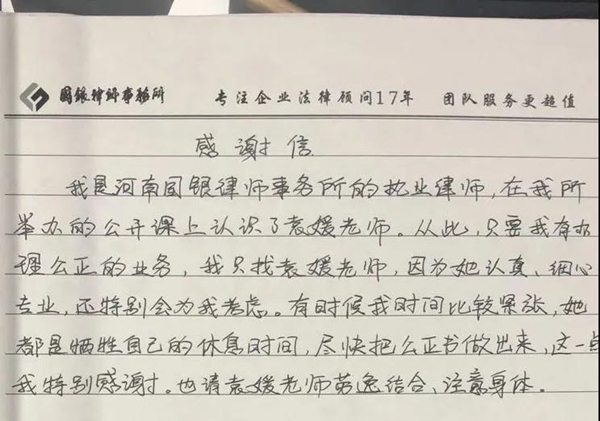 国银律师事务所 专注企业法律顾问17年 团队服务更超值
感谢信
我是河南国银律师事务所的执业律师，在我所
举办的公开课上认识了袁媛老师。从此，只要我有办
理公正的业务，我只找袁媛老师，因为她认真、细心
专业，还特别会为我考虑。有时候我时间比较紧张，她
都是牺牲自己的休息时间，尽快把公正书做出来，这一点
我特别感谢。也请袁媛老师劳逸结合，注意身体。